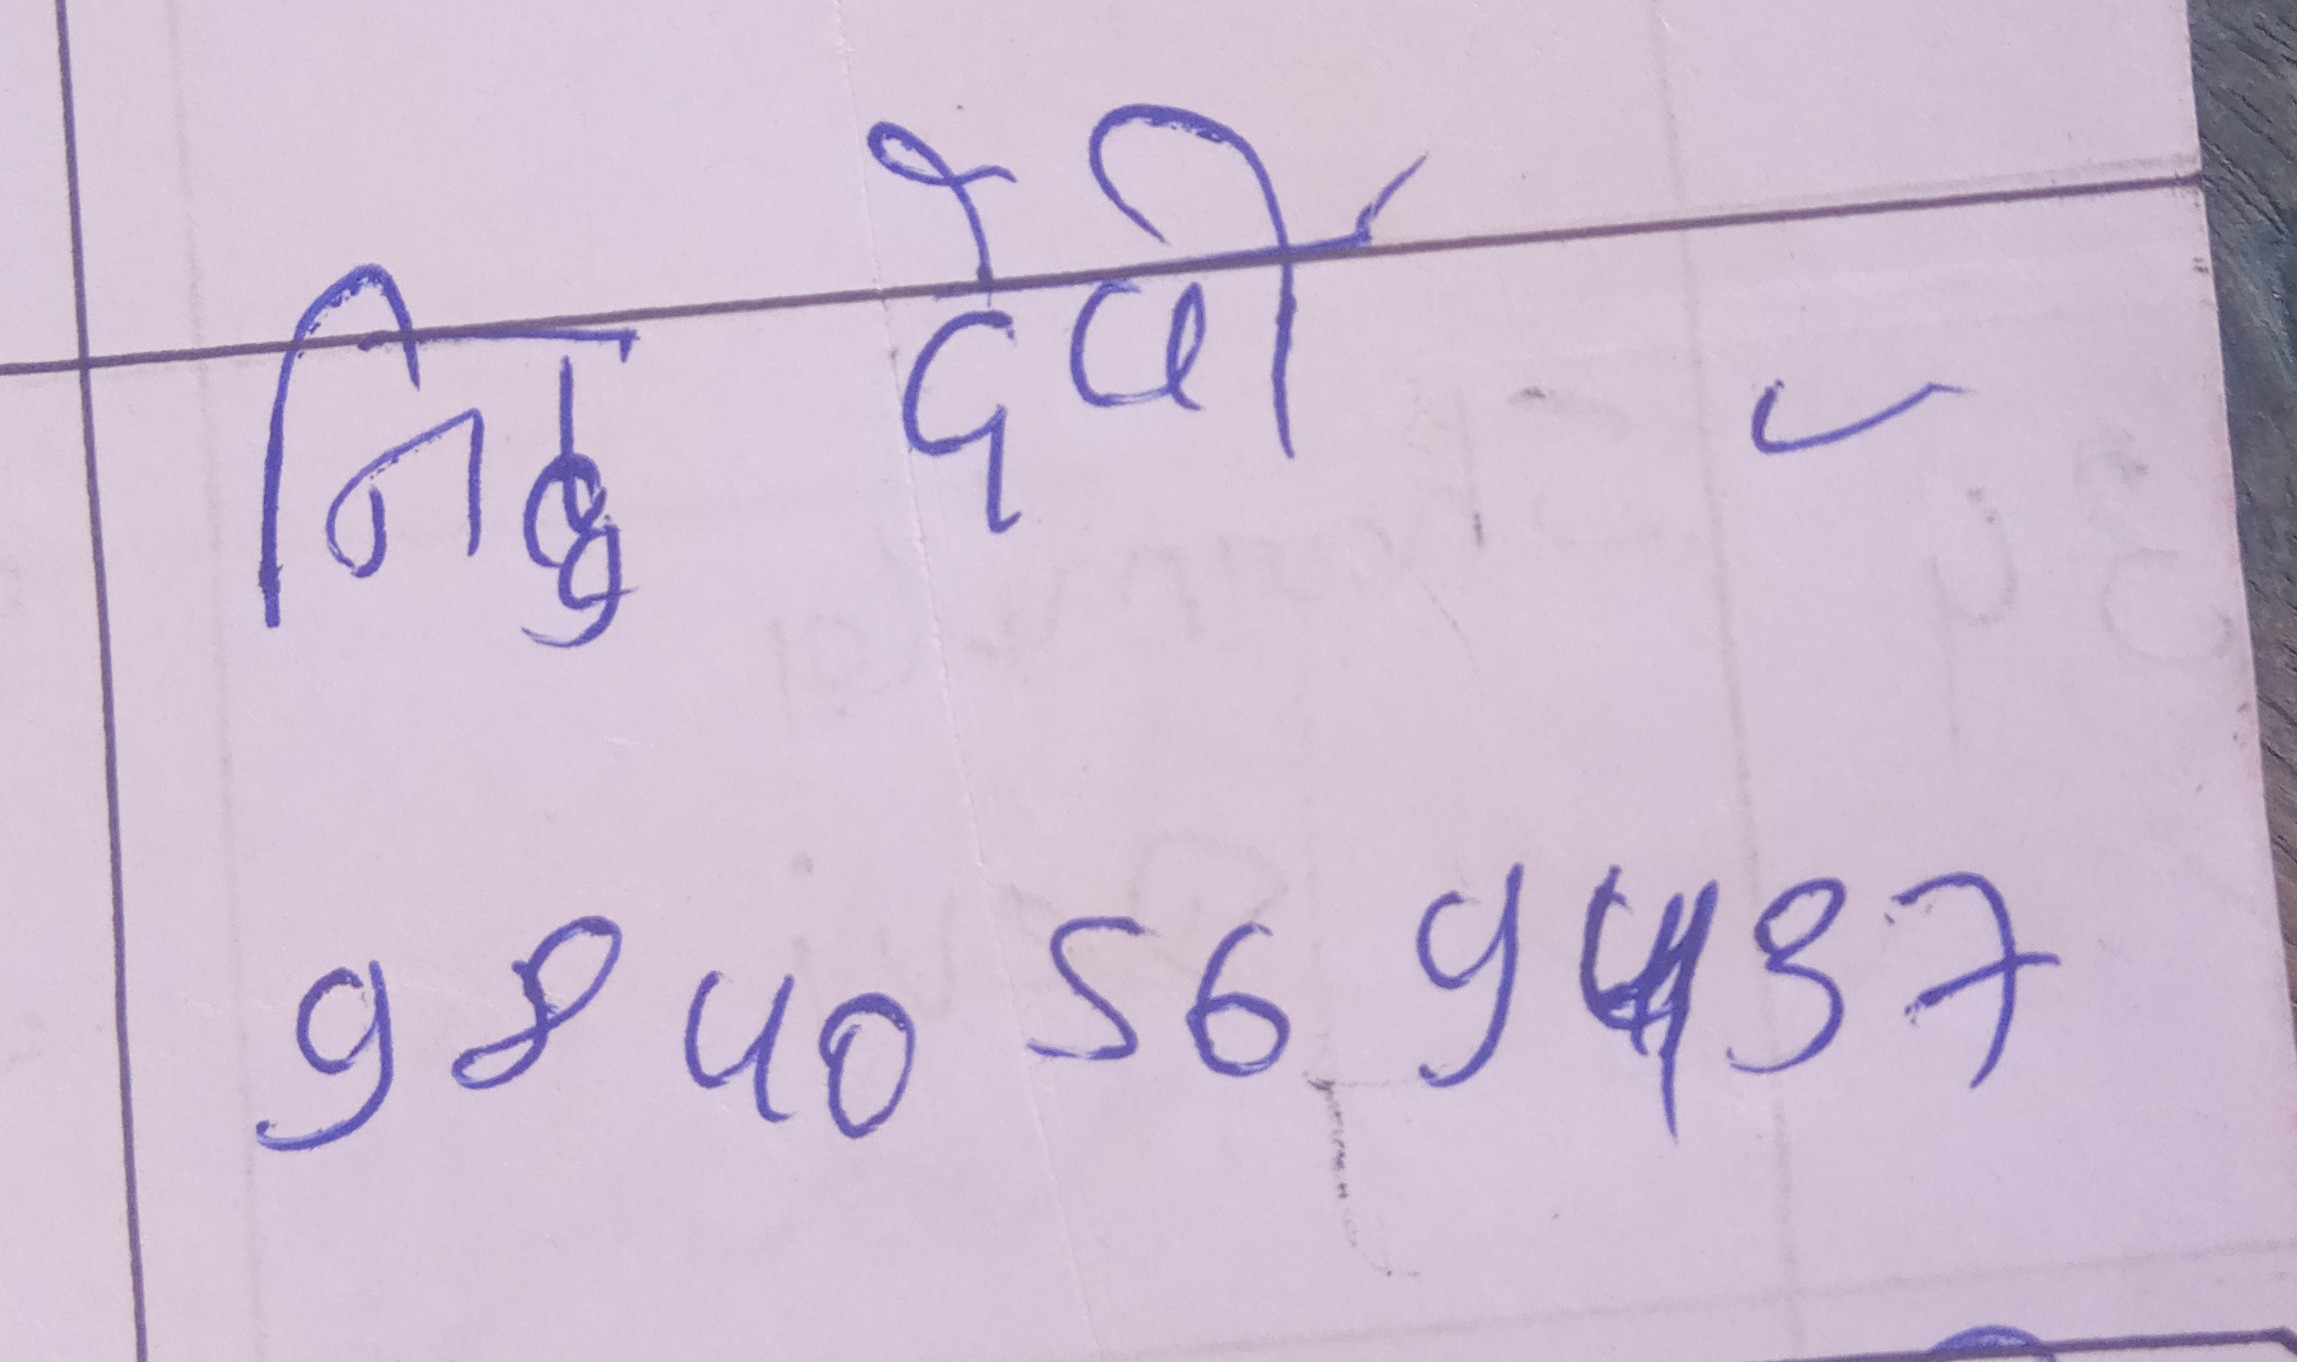 निठु देवी
9840569437